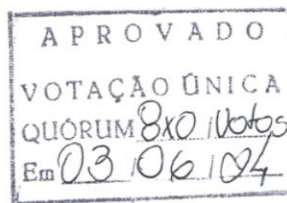 APROVADO
VOTAÇÃO ÚNICA
QUÓRUM 8x0 / Votos
Em 03 / 06 / 04